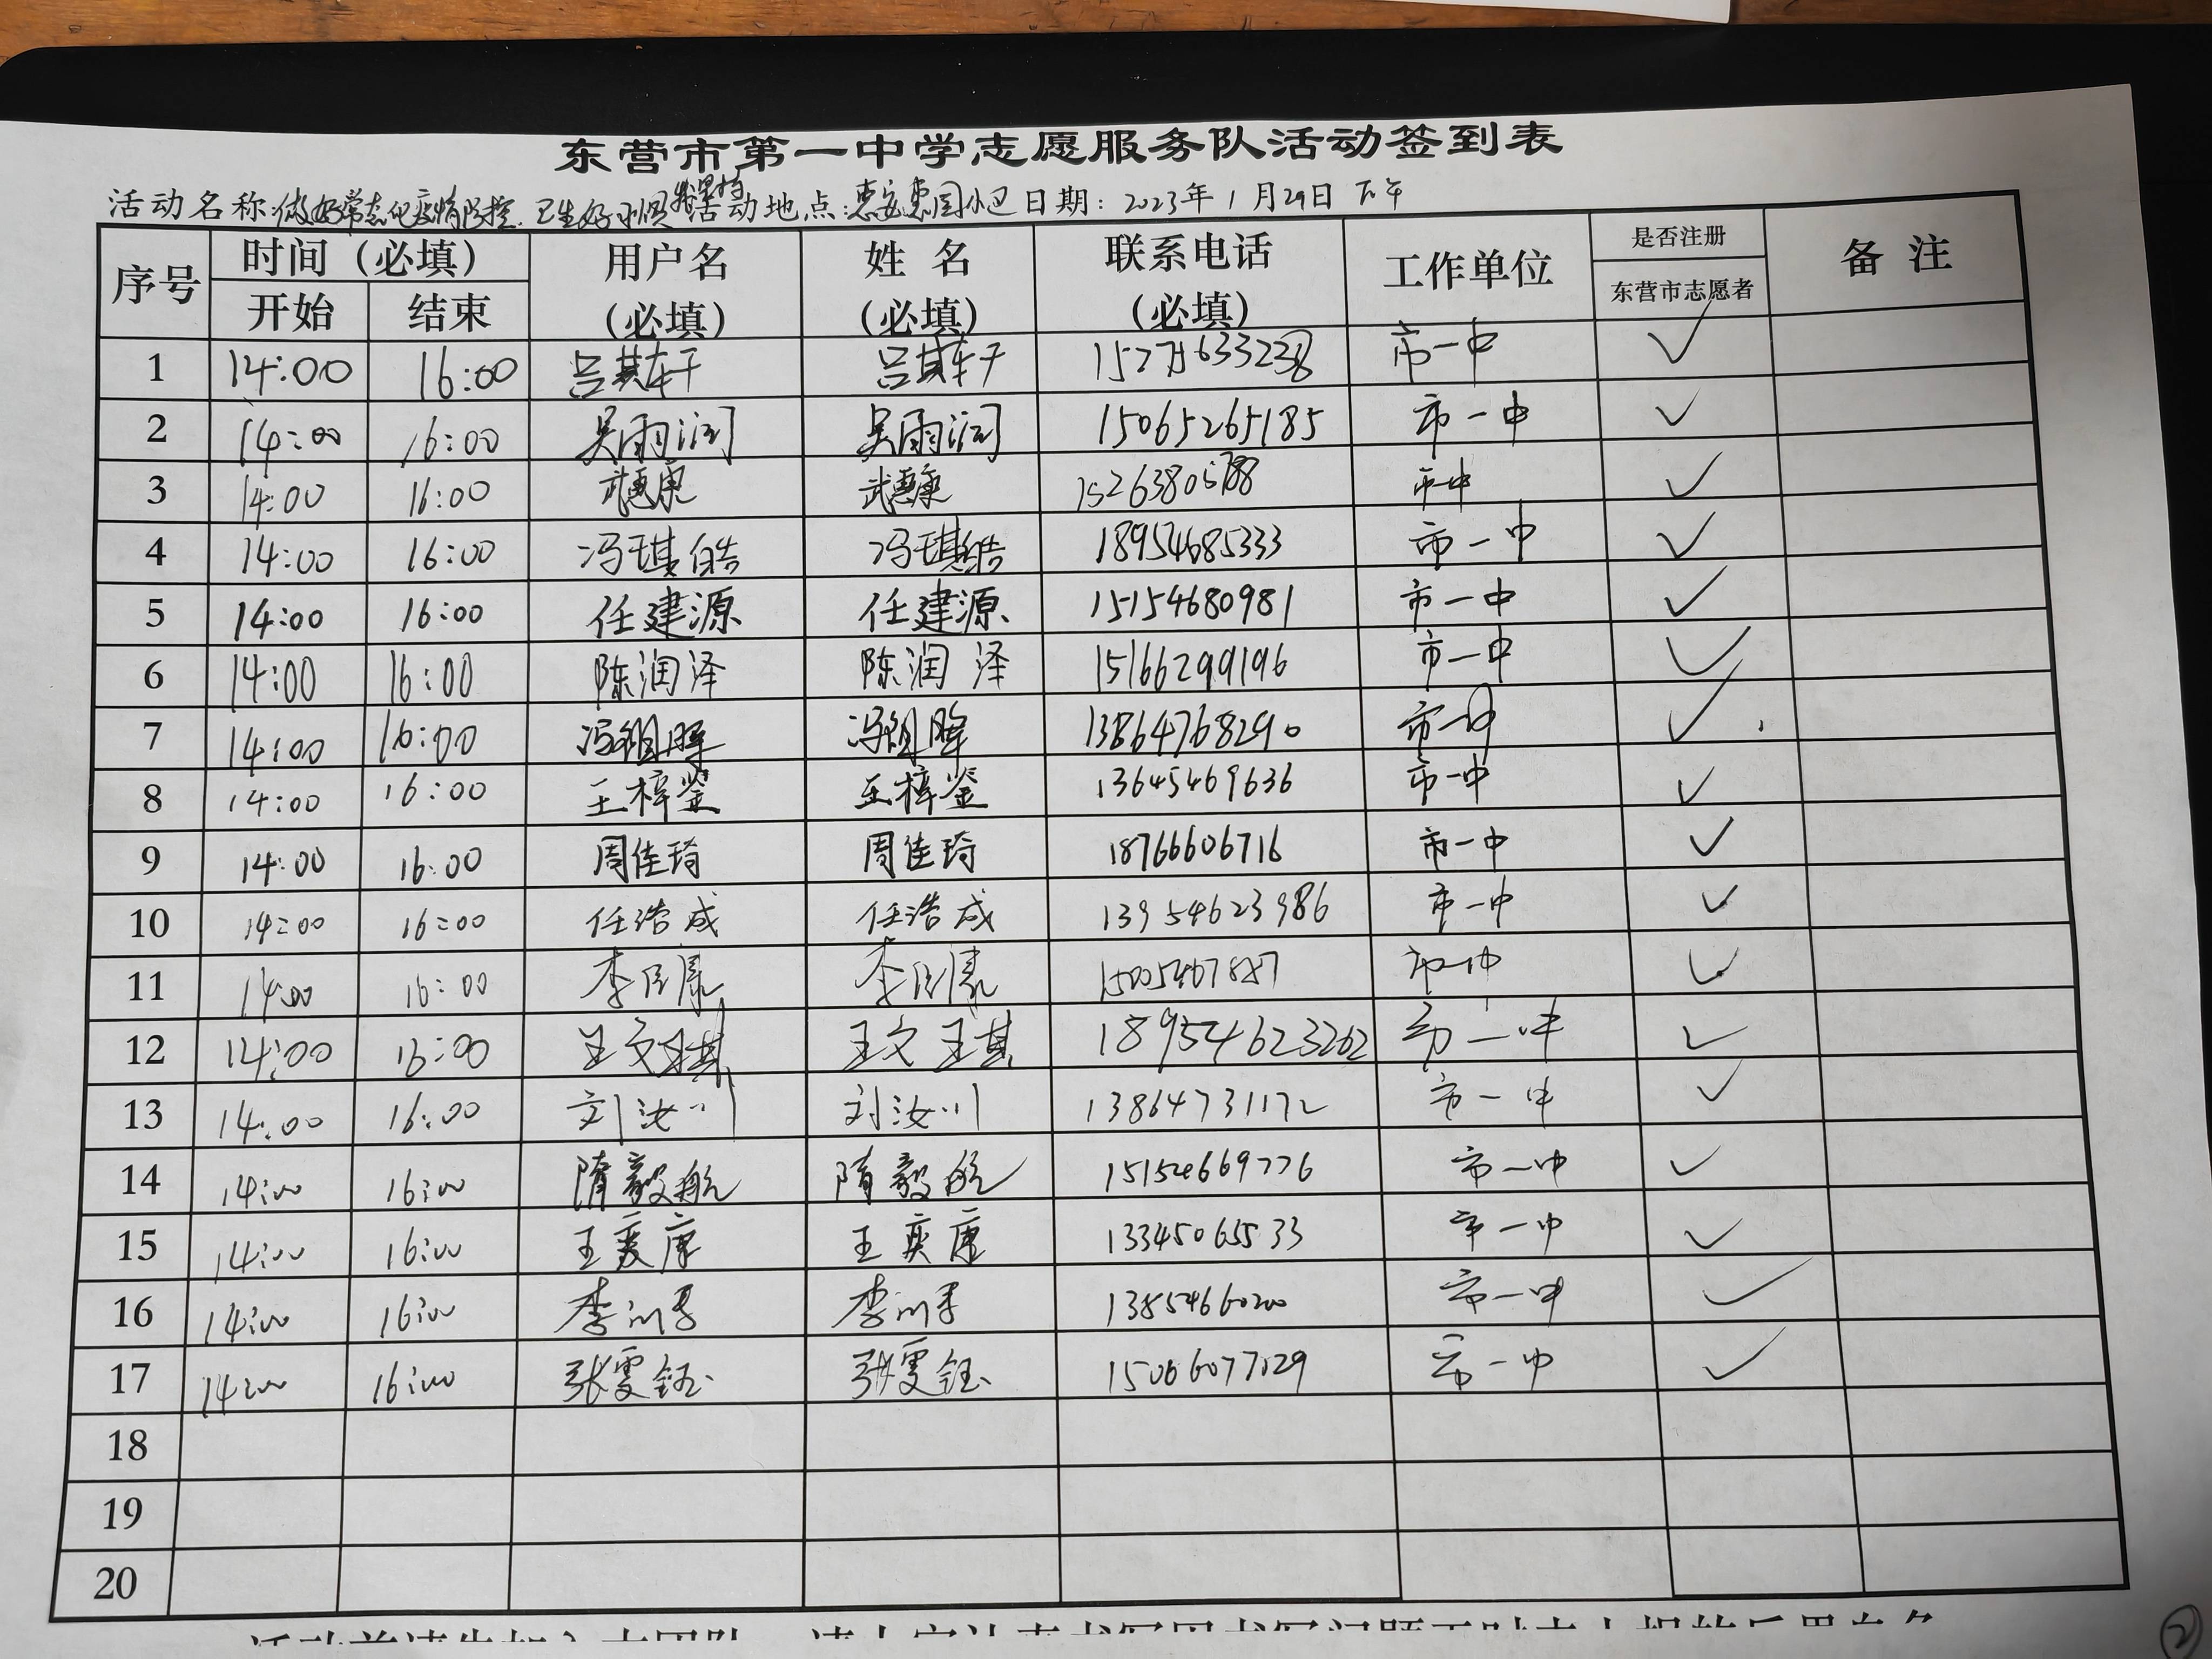 东营市第一中学志愿服务队活动签到表
活动名称:做好常态化疫情防控.卫生好习惯我坚持 活动地点:惠安惠园小区 日期: 2023年 1月29日 下午
序号 时间(必填) 用户名 姓 名 联系电话 工作单位 是否注册 备 注
开始 结束 (必填) (必填) (必填) 东营市志愿者
1 14:00 16:00 市一中 ✓
2 14:00 16:00 吴雨润 吴雨润 15065265185 市一中 ✓
3 14:00 16:00 武惠康 武惠康 市一中 ✓
4 14:00 16:00 冯琪皓 冯琪皓 18954685333 市一中 ✓
5 14:00 16:00 任建源 任建源 15154680981 市一中 ✓
6 14:00 16:00 陈润泽 陈润泽 15166299196 市一中 ✓
7 14:00 16:00 13864768290 市一中 ✓
8 14:00 16:00 王梓鉴 王梓鉴 13645469636 市一中 ✓
9 14:00 16:00 周佳琦 周佳琦 18766606716 市一中 ✓
10 14:00 16:00 任浩成 任浩成 13954623986 市一中 ✓
11 14:00 16:00 市一中 ✓
12 14:00 16:00 王文琪 王文琪 18954623262 市一中 ✓
13 14:00 16:00 刘汝川 刘汝川 13864731172 市一中 ✓
14 14:00 16:00 隋毅航 隋毅航 15154669776 市一中 ✓
15 14:00 16:00 王奕康 王奕康 13345065533 市一中 ✓
16 14:00 16:00 13854660200 市一中 ✓
17 14:00 16:00 张雯钰 张雯钰 15066077029 市一中 ✓
18
19
20
②